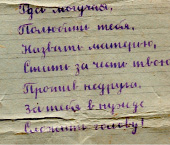 Русь могучая,
Полюбить тебя,
Назвать матерью,
Стать за честь твою
Против недруга,
За тебя в нужде
Сложить голову!